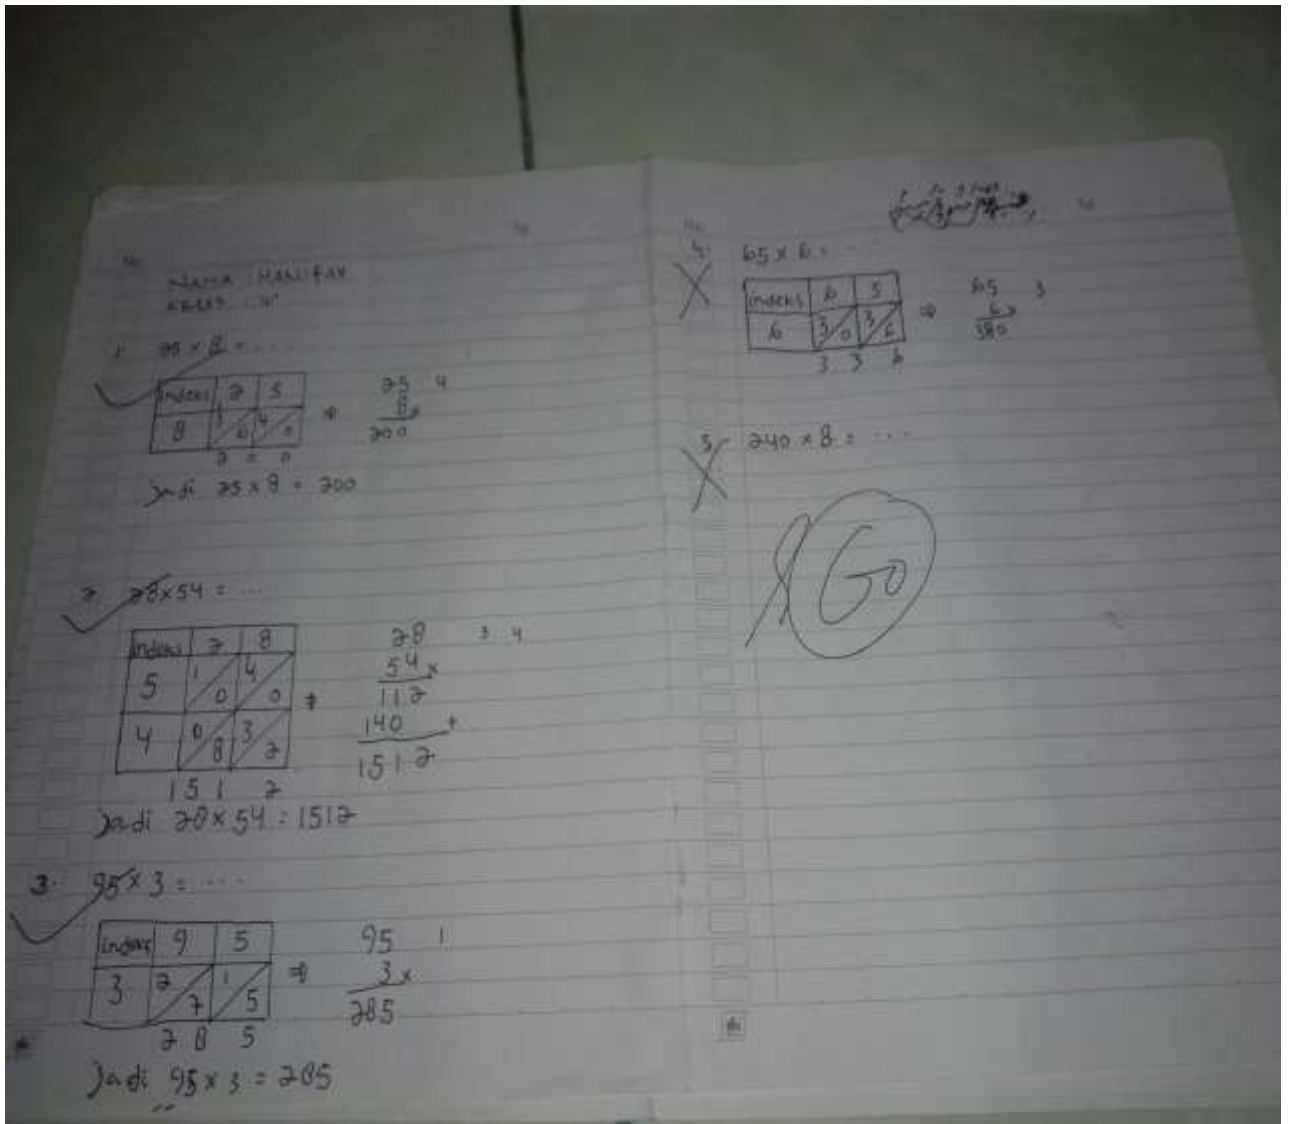 Nama : HANIFAH
KELAS : IV
1. 25 × 8 = ...
indeks 2 5
8 1/6 4/0
2 0 0
⇒
25 4
8 ×
200
Jadi 25 × 8 = 200
2. 28 × 54 = ...
indeks 2 8
5 1/0 4/0
4 0/8 3/2
1 5 1 2
⇒
28 3 4
54 ×
112
140 +
1512
Jadi 28 × 54 = 1512
3. 95 × 3 = ...
indeks 9 5
3 2/7 1/5
2 8 5
⇒
95 1
3 ×
285
Jadi 95 × 3 = 285
No
4. 65 × 6 = ...
indeks 6 5
6 3/0 3/6
3 3 6
⇒
65 3
6 ×
380
5. 240 × 8 = ...
60